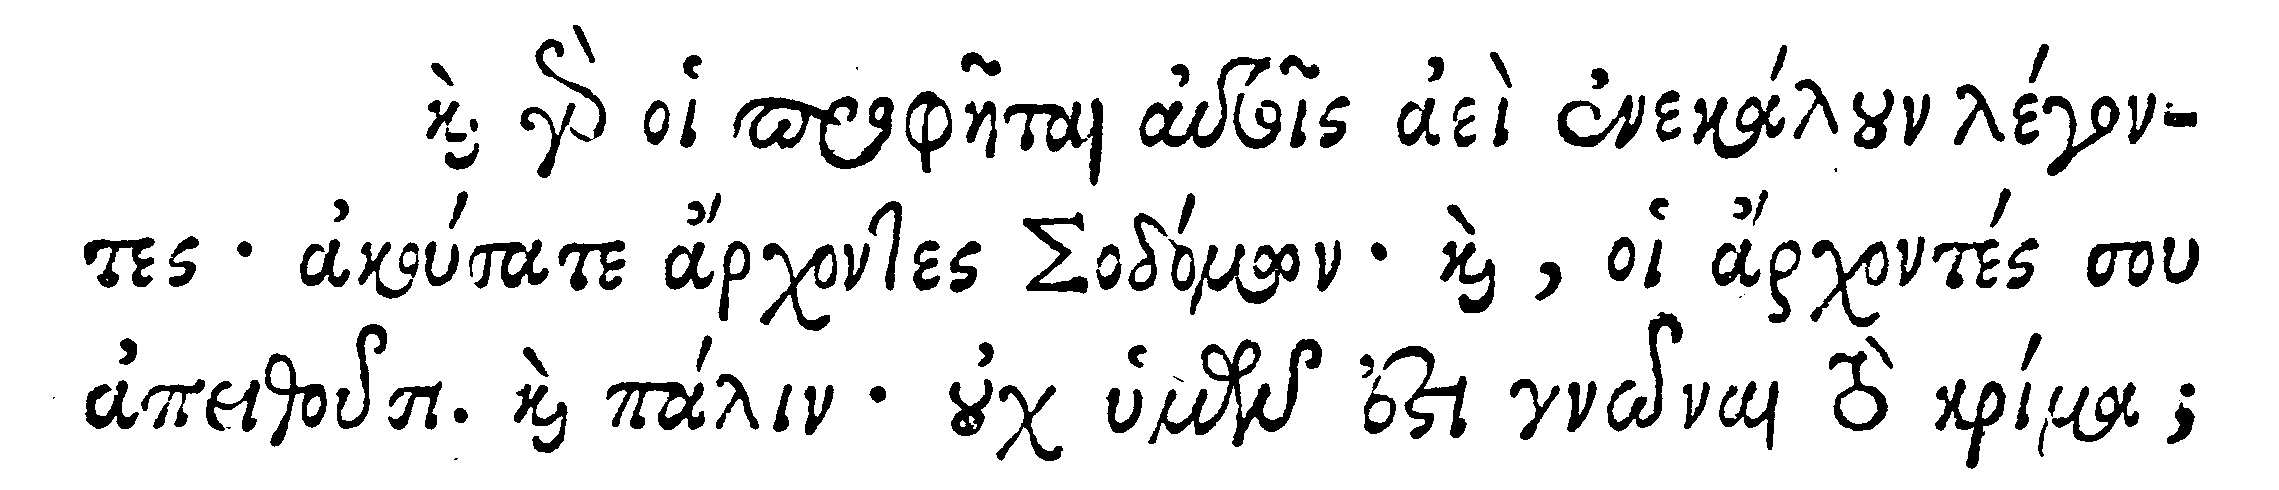 καὶ γὰρ οἱ προφῆται αὐτοῖς ἀεὶ ἐνεκάλουν λέγον-
τες · ἀκούσατε ἄρχοντες Σοδόμων · καὶ, οἱ ἄρχοντές σου
ἀπειθοῦσι. καὶ πάλιν · οὐχ ὑμῶν ἐστι γνῶναι τὸ κρίμα;